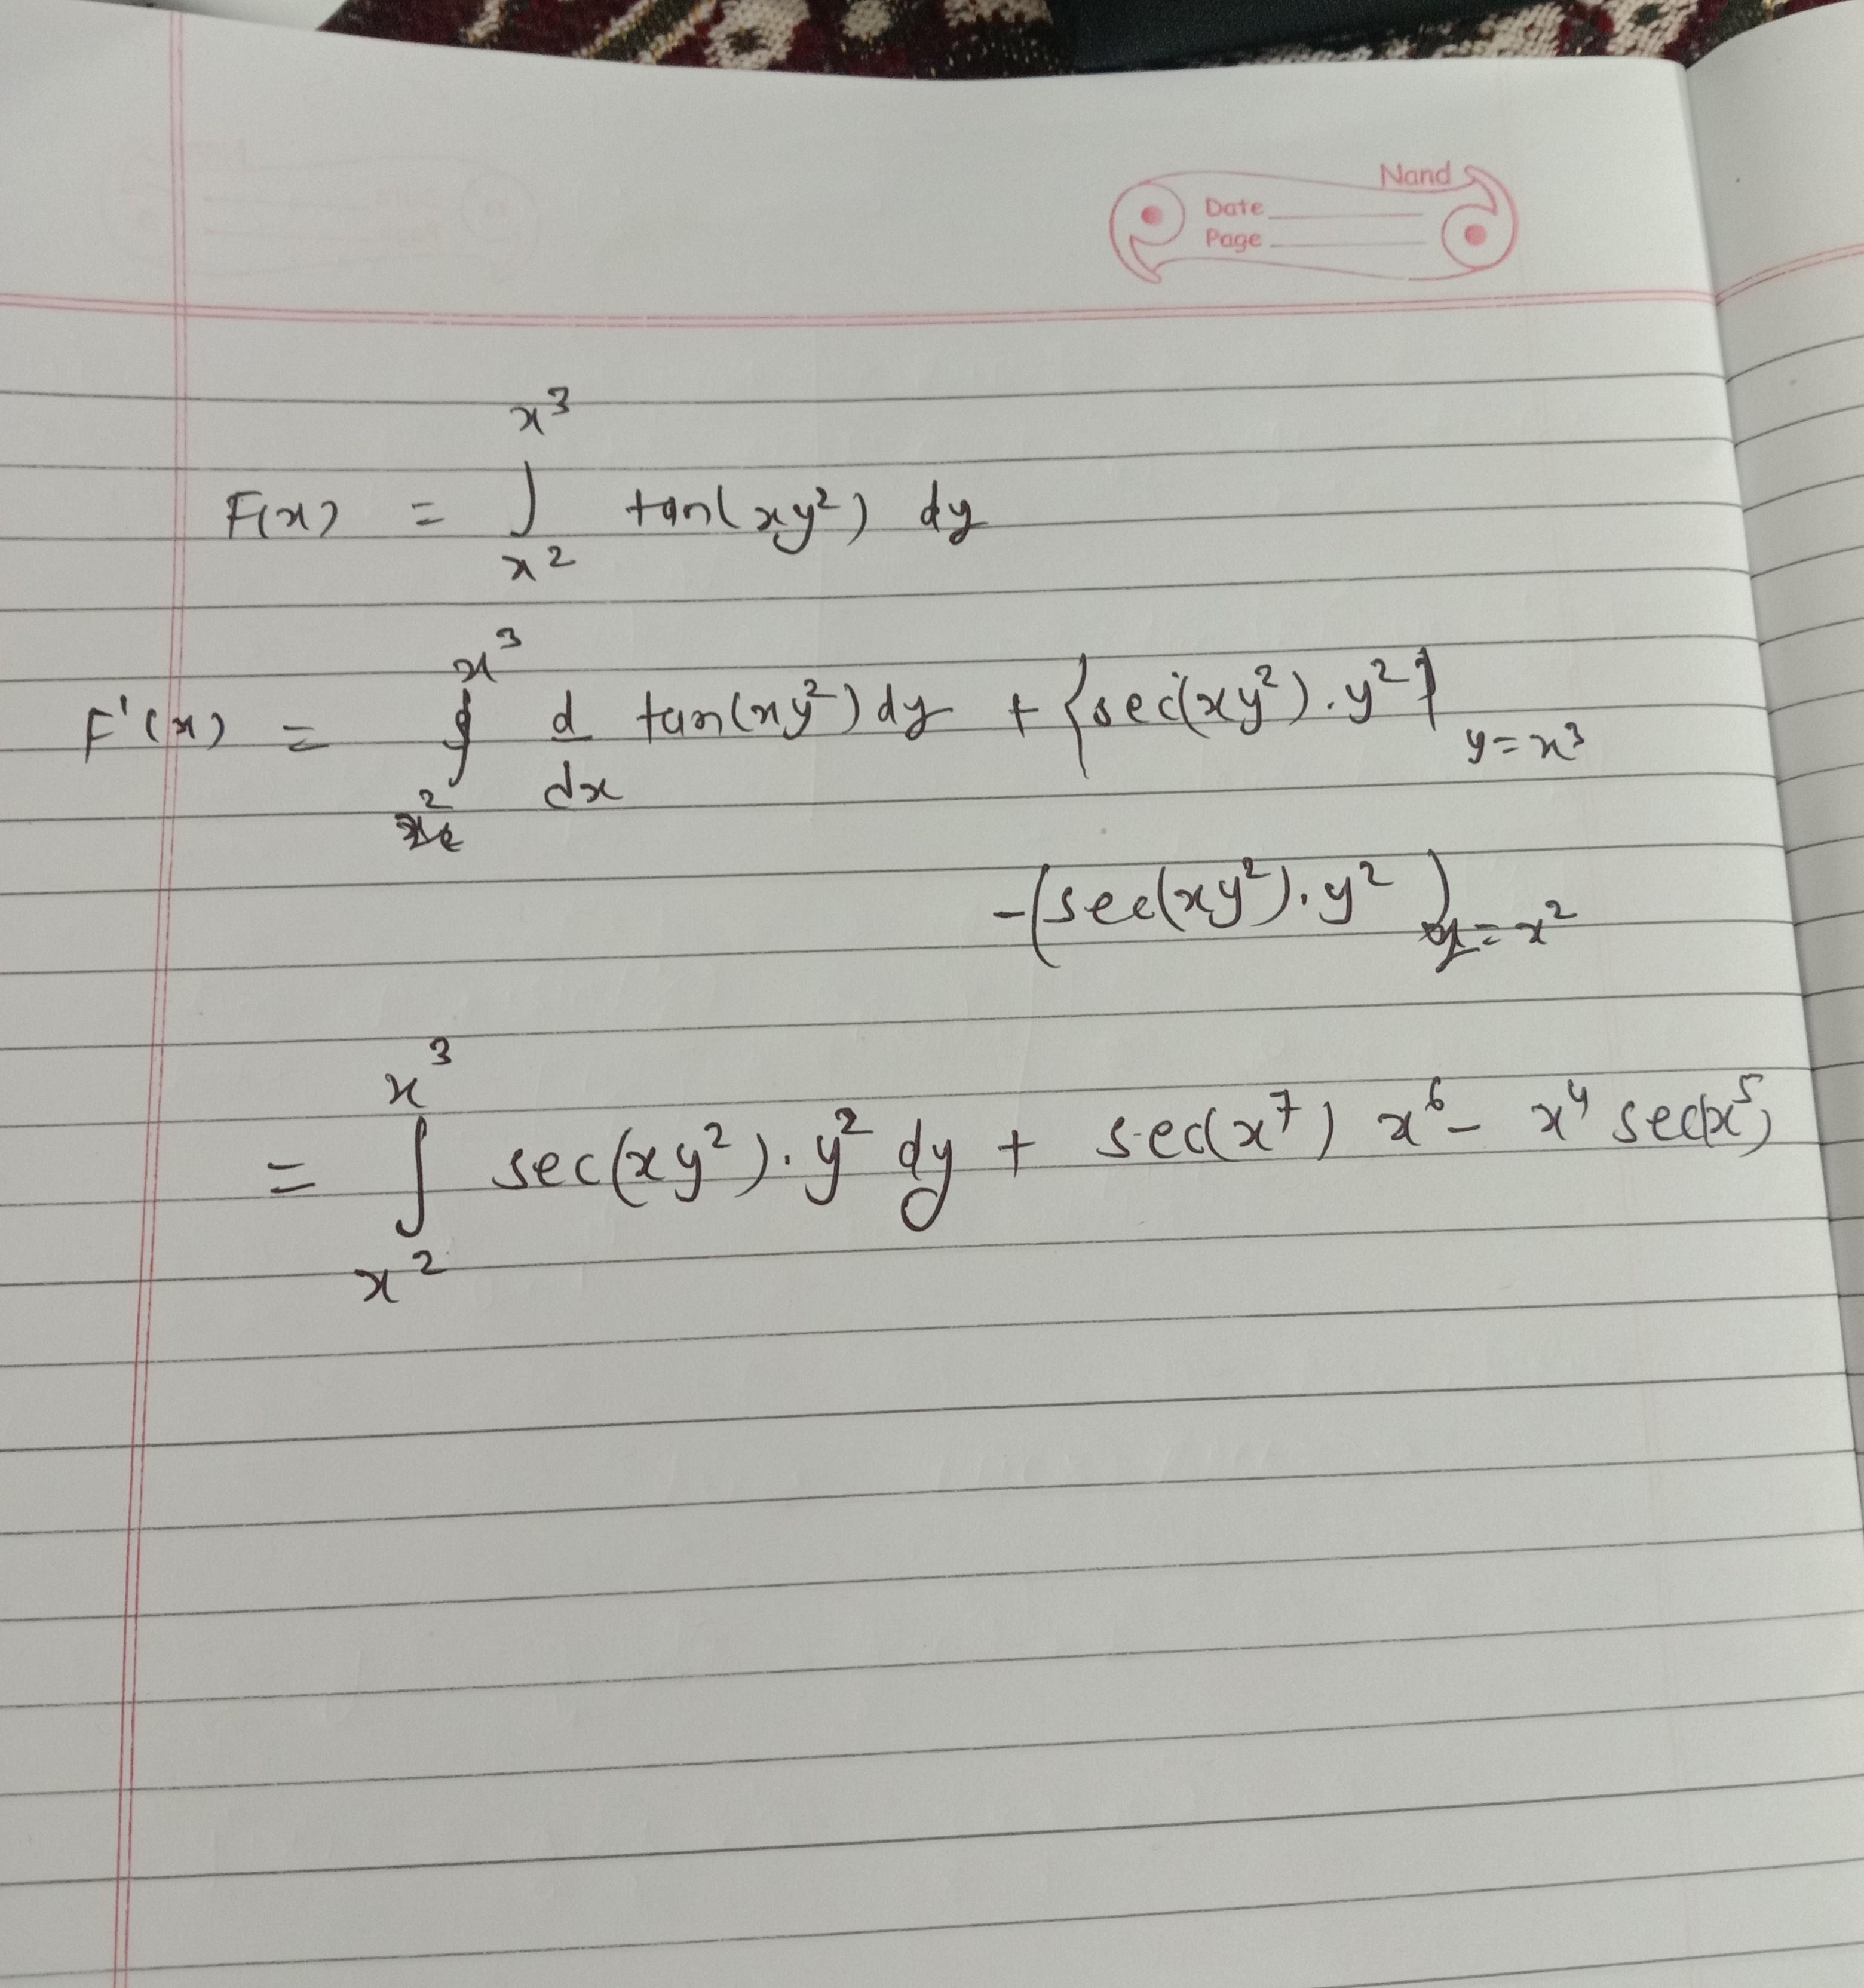 Nand
Date
Page
F(x) = ∫_{x²}^{x³} tan(xy²) dy
F'(x) = ∫_{x²}^{x³} d/dx tan(xy²) dy + {sec(xy²).y²}_{y=x³}
-(sec(xy²).y²)_{y=x²}
= ∫_{x²}^{x³} sec(xy²).y² dy + sec(x⁷) x⁶ - x⁴ sec(x⁵)